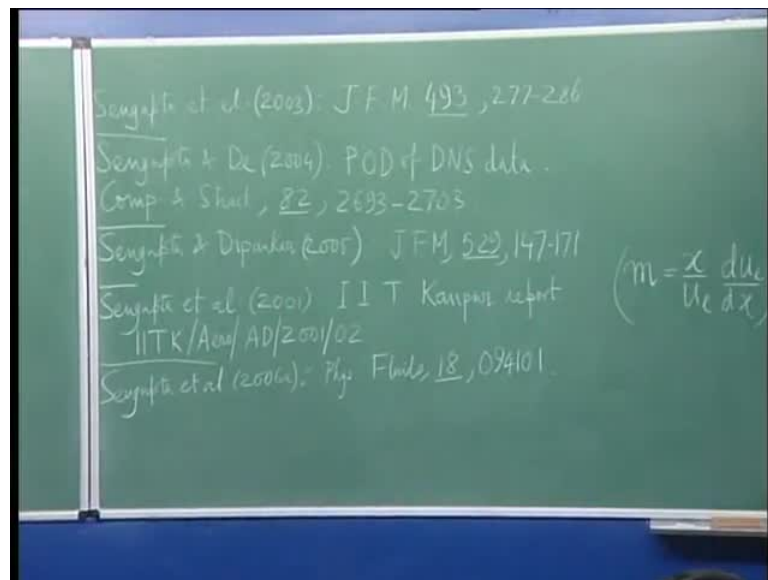 Sengupta et al. (2003): J F M. 493, 277-286
Sengupta & De (2004). POD of DNS data.
Comp & Struct, 82, 2693-2703
Sengupta & Dipankar (2005) JFM, 529, 147-171
Sengupta et al. (2001) I I T Kanpur report
IITK/Aero/AD/2001/02
Sengupta et al (2006a): Phys Fluids, 18, 094101.
(m = x/Ue dUe/dx)